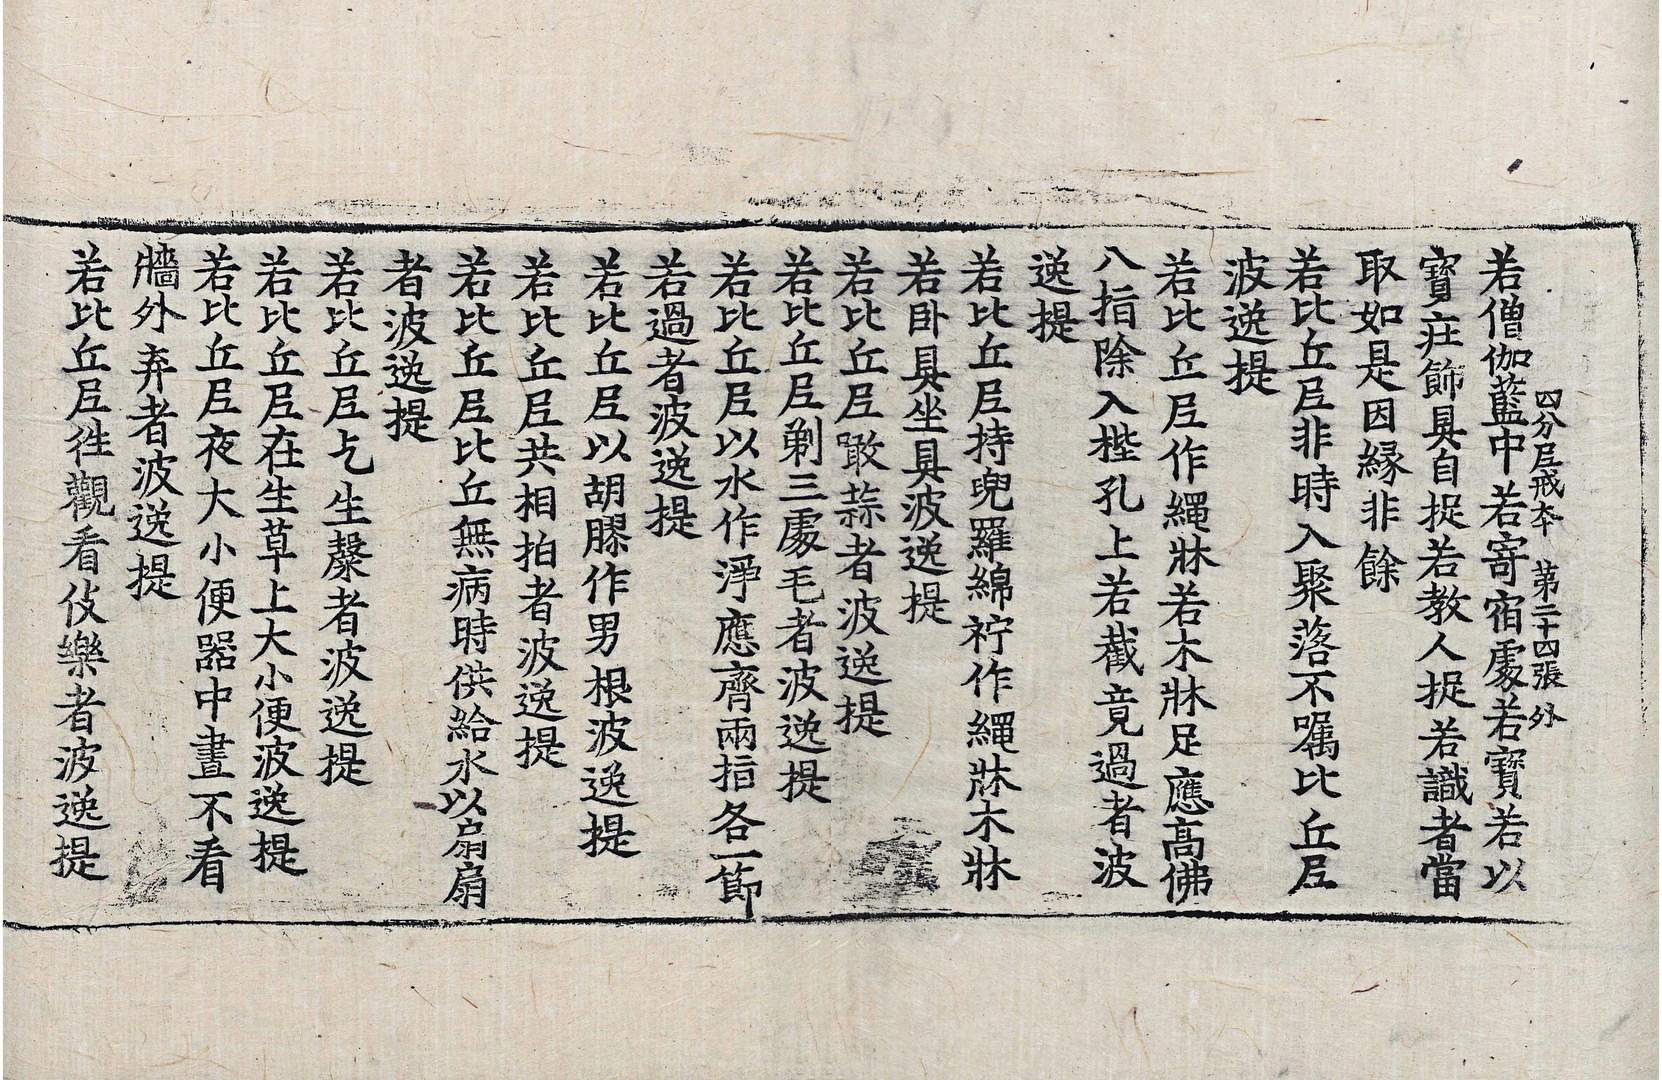 四分尼戒本 第二十四張 外
若僧伽藍中若寄宿處若寶若以
寶庄飾具自捉若教人捉若識者當
取如是因緣非餘
若比丘尼非時入聚落不囑比丘尼
波逸提
若比丘尼作繩牀若木牀足應高佛
八指除入梐孔上若截竟過者波
逸提
若比丘尼持兜羅綿紵作繩牀木牀
若卧具坐具波逸提
若比丘尼噉蒜者波逸提
若比丘尼剃三處毛者波逸提
若比丘尼以水作淨應齊兩指各一節
若過者波逸提
若比丘尼以胡膠作男根波逸提
若比丘尼共相拍者波逸提
若比丘尼比丘無病時供給水以扇扇
者波逸提
若比丘尼乞生糜者波逸提
若比丘尼在生草上大小便波逸提
若比丘尼夜大小便器中晝不看
牆外弃者波逸提
若比丘尼往觀看伎樂者波逸提